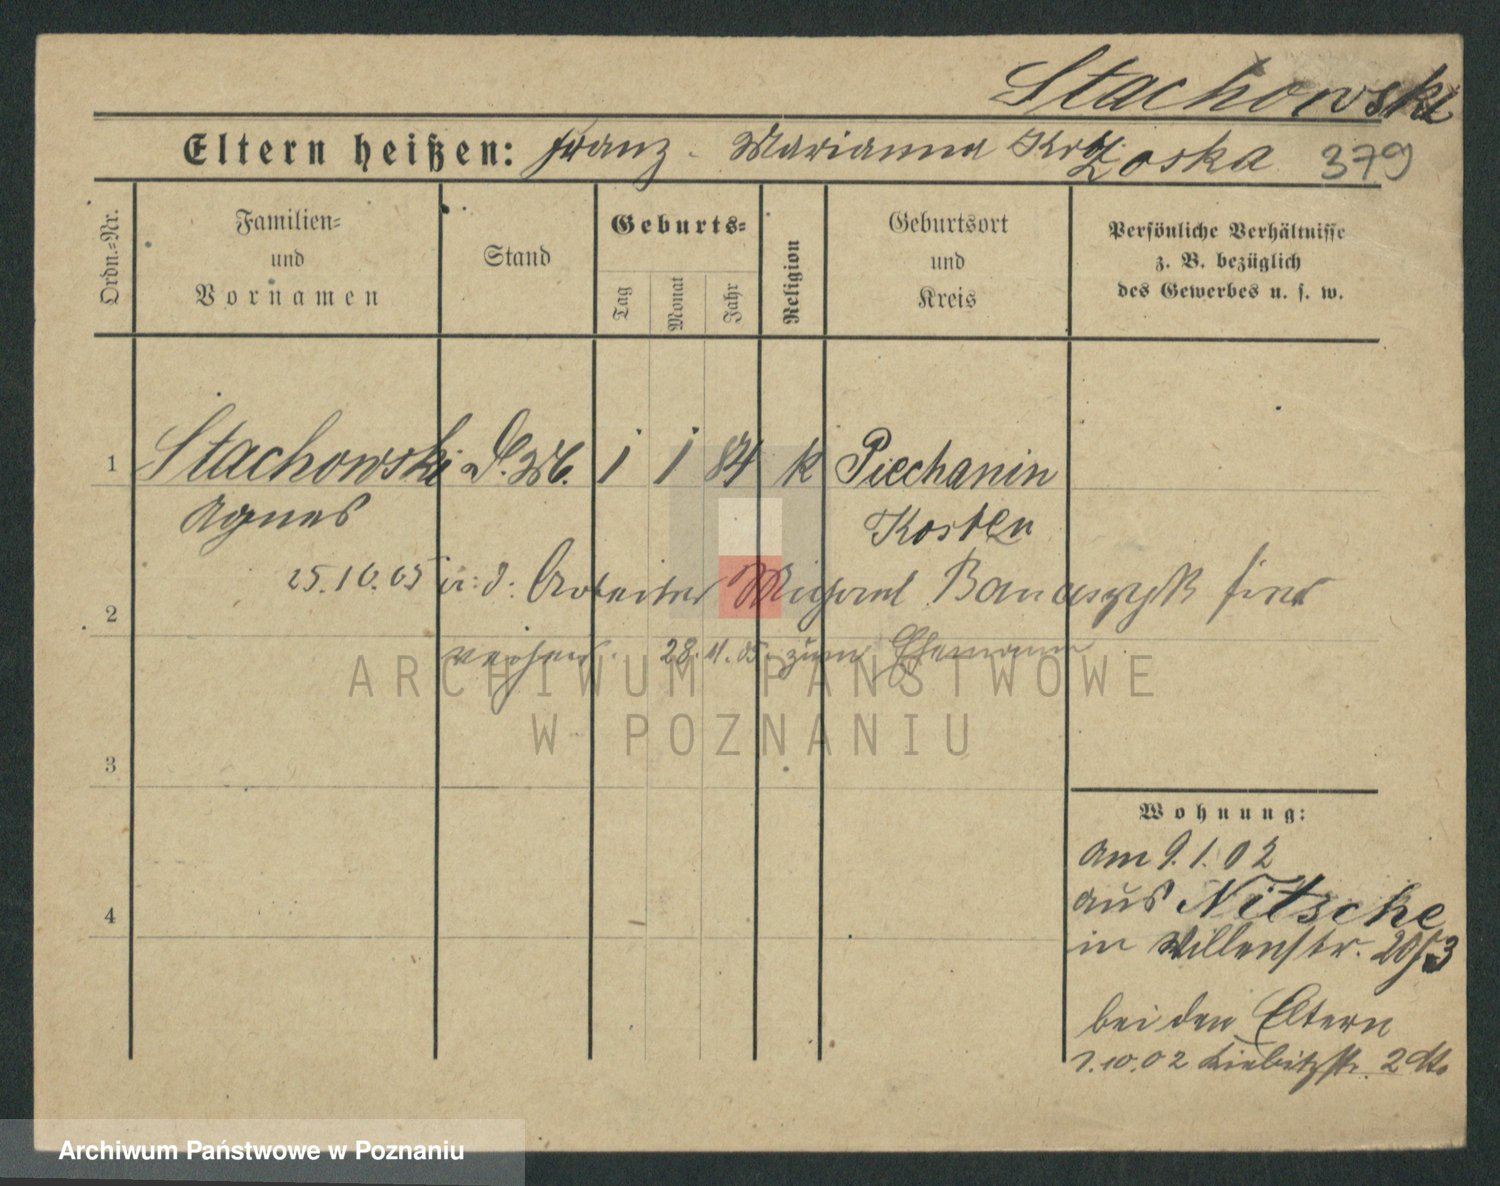 Stachowski
Eltern heißen: Franz - Marianna 379
Ordn.=Nr.
Familien=
und
Vornamen
Stand
Geburts=
Tag
Monat
Jahr
Religion
Geburtsort
und
Kreis
Persönliche Verhältnisse
z. B. bezüglich
des Gewerbes u. s. w.
1 Stachowski 1 1 84 k Piechanin
Agnes Kosten
25.10.05 Arbeiter Banaszyk hier
2
28. 11. 05. zum Ehemann
ARCHIWUM PAŃSTWOWE
W POZNANIU
3
4
Wohnung:
am 9.1.02
aus Nitsche
in Villenstr. 20/3
bei den Eltern
1.10.02 2
Archiwum Państwowe w Poznaniu